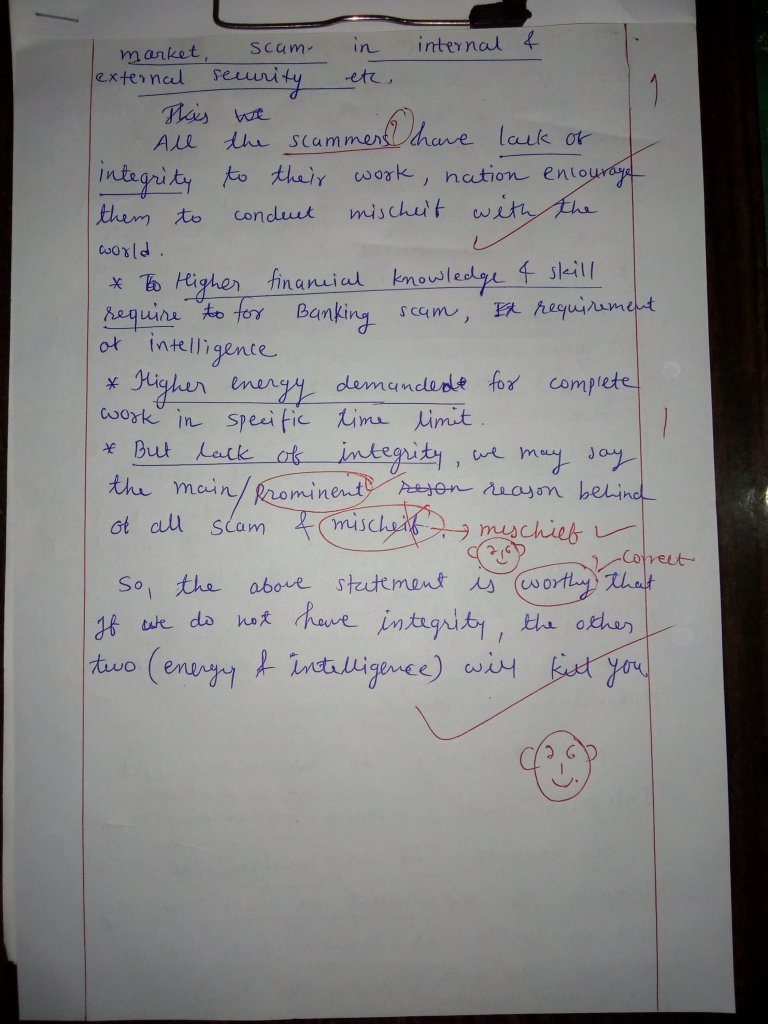 market, scam in internal &
external security etc.
This we
All the scammers ? have lack of
integrity to their work, nation encourage
them to conduct mischeif with the
world.
* To Higher financial knowledge & skill
require to for Banking scam, It requirement
of intelligence
* Higher energy demanded for complete
work in specific time limit.
* But lack of integrity, we may say
the main/prominent reson reason behind
of all scam & mischeif. → mischief
correct
So, the above statement is worthy that
If we do not have integrity, the other
two (energy & intelligence) will kill you